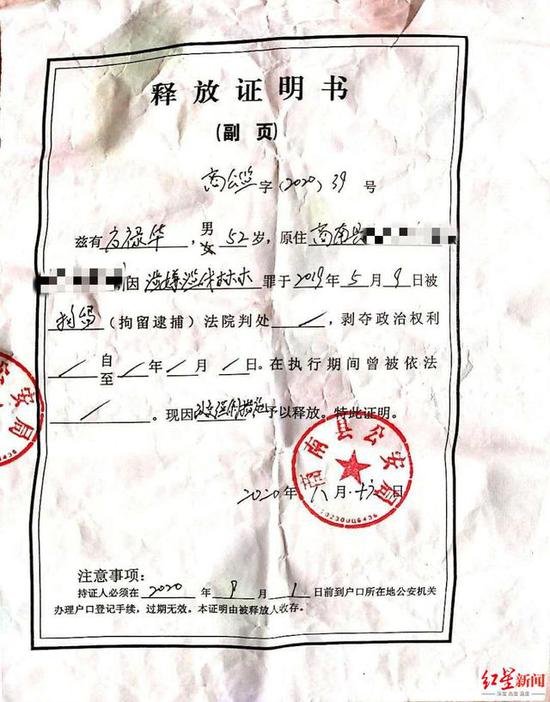 释放证明书
(副 页)
商公 字(2020)39 号
兹有 方禄华 , 男 52 岁, 原住 商南县
女
因 涉嫌 林木 罪于 2019 年 5 月 9 日被
拘留 (拘留逮捕) 法院判处 / , 剥夺政治权利
/ 自 / 年 / 月 / 日。在执行期间曾被依法
至
/ 。现因 予以释放。特此证明。
商南县公安局
6102300006436
2020年 六 月 日
安局
注意事项:
持证人必须在 2020 年 9 月 1 日前到户口所在地公安机关
办理户口登记手续,过期无效。本证明由被释放人收存。
红星新闻
深度 态度 温度